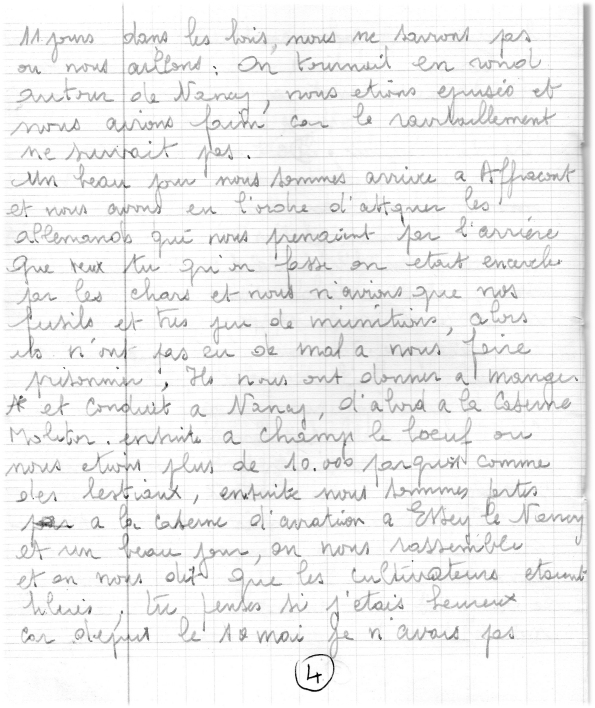 11 jours dans les bois, nous ne savions pas
ou nous aillons : On tournait en rond
autour de Nancy, nous etions epuisés et
nous avions faim car le ravitaillement
ne suivait pas.
Un beau jour nous sommes arrive a Affracourt
et nous avons eu l'ordre d'attquer les
allemands qui nous prenaient par l'arriére
que veux tu qu'on fasse on etait encercle
par les chars et nous n'avions que nos
fusils et tres peu de munitions, alors
ils n'ont pas eu de mal a nous faire
prisonnier, Ils nous ont donner a manger
et conduit a Nancy, d'abord a la Caserne
Molitor. ensuite a champ le boeuf ou
nous etions plus de 10.000 parqués comme
des bestiaux, ensuite nous sommes
a la caserne d'aviation a Essey le Nancy
et un beau jour, on nous rassemble
et on nous dit que les cultivateurs etaient
, tu penses si j'etais heureux
car depuis le 10 mai Je n'avais pas
4